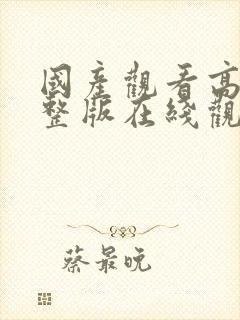 國產觀看高
整版在綫觀
蔡最晚